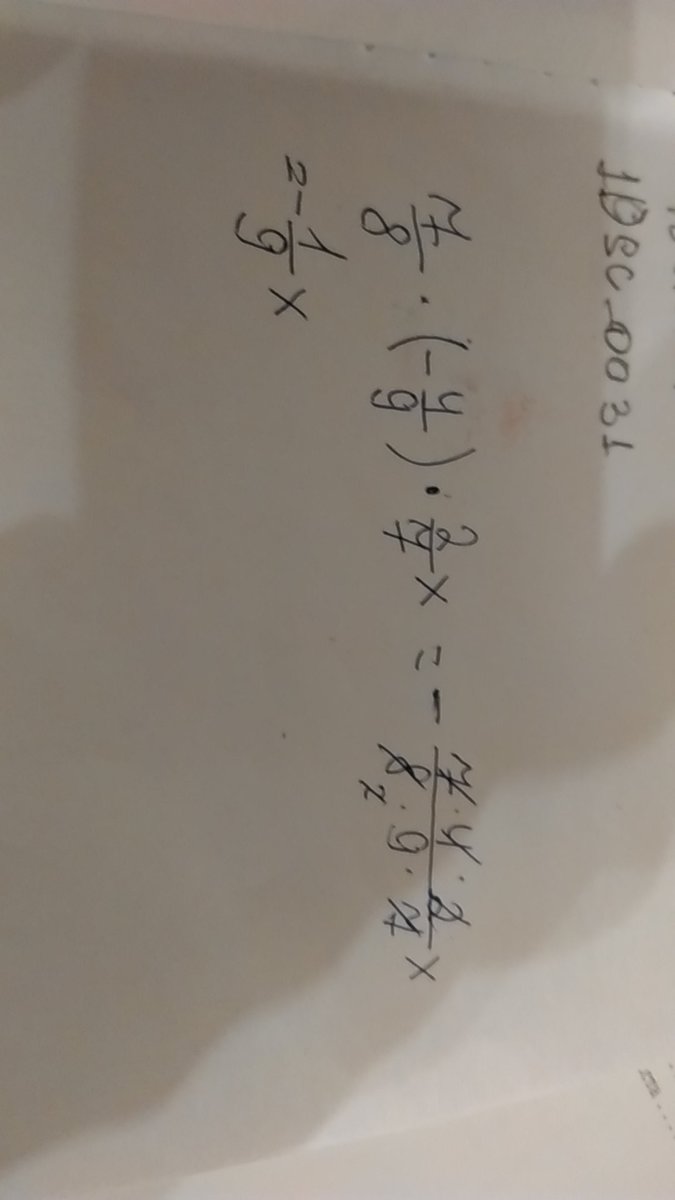 1DSC-0031
7/8 · (-4/9) · 2/7 x = - 7·4·2/8·9·7 x
2
= - 1/9 x